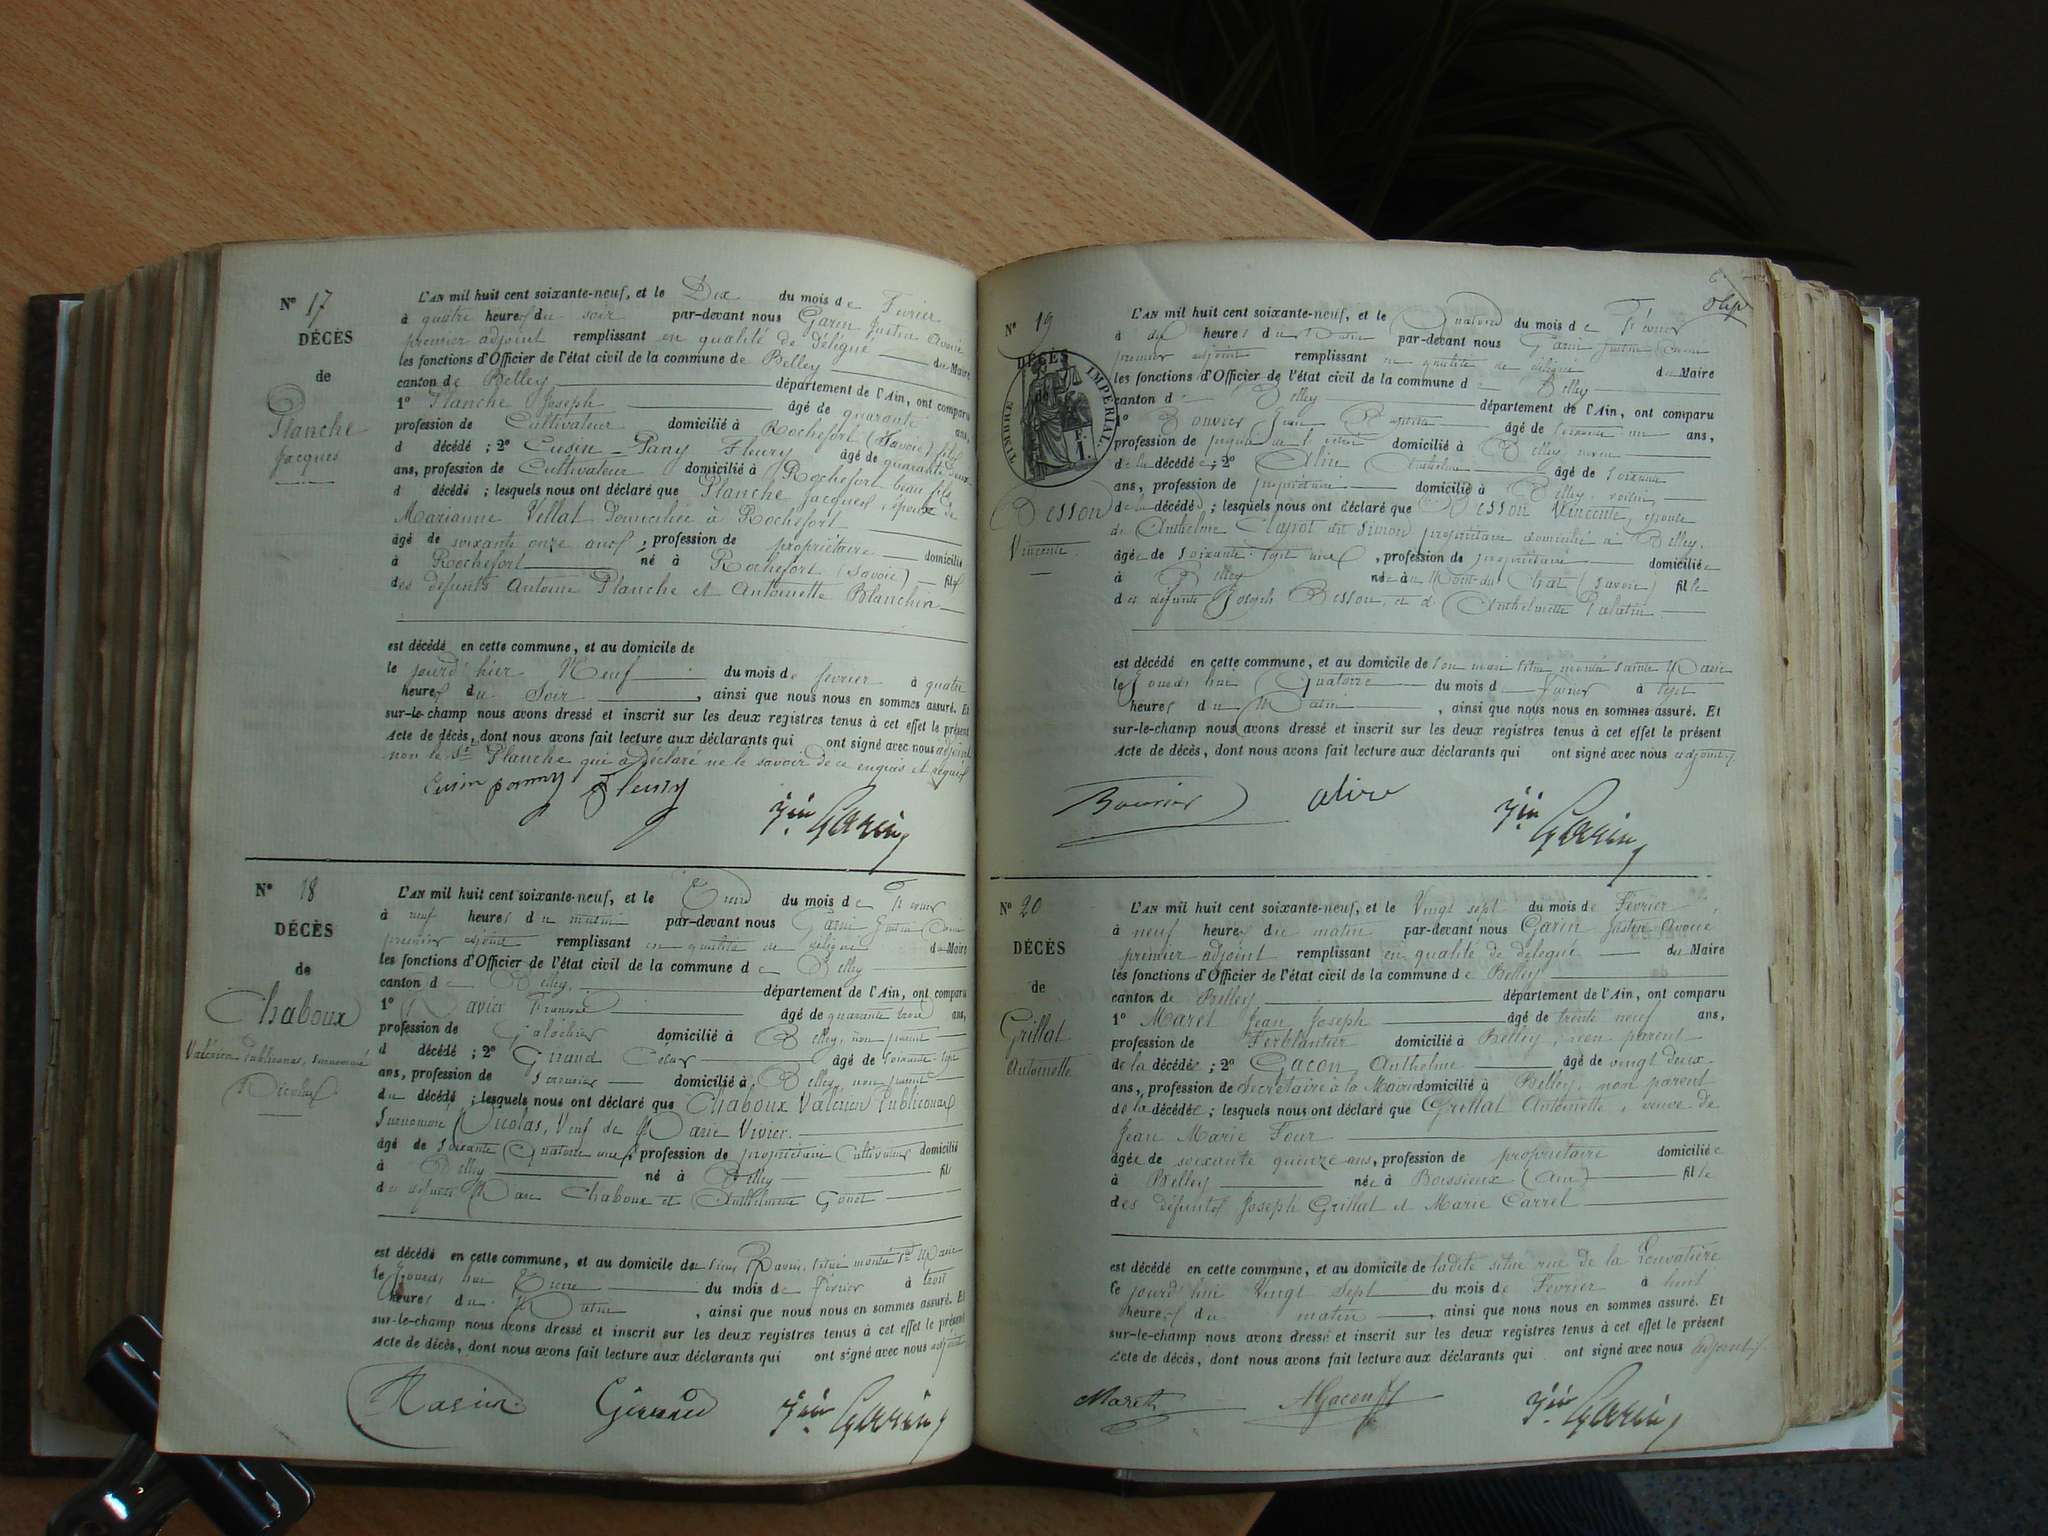 N° 17
DÉCÈS
de
Planche
Jacques
L'AN mil huit cent soixante-neuf, et le Dix du mois de Février
à quatre heures du soir par-devant nous Garin Justin Avoué
premier adjoint remplissant en qualité de Délégué du Maire
les fonctions d'Officier de l'état civil de la commune de Belley
canton de Belley département de l'Ain, ont comparu
1° Planche Joseph âgé de quarante ans,
profession de Cultivateur domicilié à Rochefort (Savoie) fils
d décédé ; 2° Cusin-Pany Fleury âgé de quarante deux
ans, profession de Cultivateur domicilié à Rochefort beau fils
d décédé ; lesquels nous ont déclaré que Planche Jacques, époux de
Marianne Vellat Domiciliée à Rochefort
âgé de soixante onze ans, profession de propriétaire domicilié
à Rochefort né à Rochefort (Savoie) fils
des défunts Antoine Planche et Antoinette Blanchin
est décédé en cette commune, et au domicile de
le jourd'hier Neuf du mois de février à quatre
heures du Soir, ainsi que nous nous en sommes assuré. Et
sur-le-champ nous avons dressé et inscrit sur les deux registres tenus à cet effet le présent
Acte de décès, dont nous avons fait lecture aux déclarants qui ont signé avec nous adjoint
non le Sr Planche qui a déclaré ne le savoir de ce enquis et requis
Cusin pany Fleury Jin Garin
N° 18
DÉCÈS
de
Chaboux
Valérien Publiconas, surnommé
Nicolas
L'AN mil huit cent soixante-neuf, et le du mois de Février
à neuf heures du matin par-devant nous Garin Justin Avoué
premier adjoint remplissant en qualité de délégué du Maire
les fonctions d'Officier de l'état civil de la commune de Belley
canton de Belley département de l'Ain, ont comparu
1° Ravier François âgé de quarante trois ans,
profession de Galochier domicilié à Belley, non parent
d décédé ; 2° Giraud César âgé de soixante-sept
ans, profession de Serrurier domicilié à Belley, non parent
du décédé ; lesquels nous ont déclaré que Chaboux Valérien Publiconas
Surnommé Nicolas, Veuf de Marie Vivier.
âgé de soixante Quatorze ans, profession de propriétaire Cultivateur domicilié
à Belley né à Belley fils
des défunts Marc Chaboux et Anthelmette Gonet
est décédé en cette commune, et au domicile du sieur Ravier, situé montée Ste Marie
le Jourd'hui du mois de Février à trois
heures du Matin, ainsi que nous nous en sommes assuré. Et
sur-le-champ nous avons dressé et inscrit sur les deux registres tenus à cet effet le présent
Acte de décès, dont nous avons fait lecture aux déclarants qui ont signé avec nous adjoint
Giraud Jin Garin
6
N° 19
DÉCÈS
de
TIMBRE IMPÉRIAL.
F. 1.
Besson
Vincente
L'AN mil huit cent soixante-neuf, et le Quatorze du mois de Février
à dix heures du Matin par-devant nous Garin Justin Avoué
premier adjoint remplissant en qualité de délégué du Maire
les fonctions d'Officier de l'état civil de la commune de Belley
canton de Belley département de l'Ain, ont comparu
1° Bouvier Jean Baptiste âgé de soixante-un ans,
profession de domicilié à Belley neveu
de la décédée ; 2° Alin Anthelme âgé de soixante
ans, profession de propriétaire domicilié à Belley, voisin
de la décédée ; lesquels nous ont déclaré que Besson Vincente, épouse
de Anthelme Clapot dit Simon propriétaire domicilié à Belley.
âgée de soixante-sept ans, profession de propriétaire domiciliée
à Belley née au Mont-du-Chat (Savoie) fille
des défunts Joseph Besson, et d'Anthelmette Palatin
est décédé en cette commune, et au domicile de son mari situé montée Sainte Marie
le Jourd'hui Quatorze du mois de Février à sept
heures du Matin, ainsi que nous nous en sommes assuré. Et
sur-le-champ nous avons dressé et inscrit sur les deux registres tenus à cet effet le présent
Acte de décès, dont nous avons fait lecture aux déclarants qui ont signé avec nous adjoint.
Bouvier Jin Garin
N° 20
DÉCÈS
de
Grillat
Antoinette
L'AN mil huit cent soixante-neuf, et le Vingt sept du mois de Février
à neuf heures du matin par-devant nous Garin Justin Avoué
premier adjoint remplissant en qualité de délégué du Maire
les fonctions d'Officier de l'état civil de la commune de Belley
canton de Belley département de l'Ain, ont comparu
1° Maret Jean Joseph âgé de trente neuf ans,
profession de Ferblantier domicilié à Belley, non parent
de la décédée ; 2° Gacon Anthelme âgé de vingt deux
ans, profession de Secrétaire à la Mairie domicilié à Belley, non parent
de la décédée ; lesquels nous ont déclaré que Grillat Antoinette, veuve de
Jean Marie Four
âgée de soixante quinze ans, profession de propriétaire domiciliée
à Belley née à Boissieux (Ain) fille
des défunts Joseph Grillat et Marie Carrel
est décédé en cette commune, et au domicile de ladite situé rue de la Louvatière
le jourd'hui Vingt Sept du mois de Février à huit
heures du matin, ainsi que nous nous en sommes assuré. Et
sur-le-champ nous avons dressé et inscrit sur les deux registres tenus à cet effet le présent
Acte de décès, dont nous avons fait lecture aux déclarants qui ont signé avec nous adjoint.
Maret AGacon Jin Garin